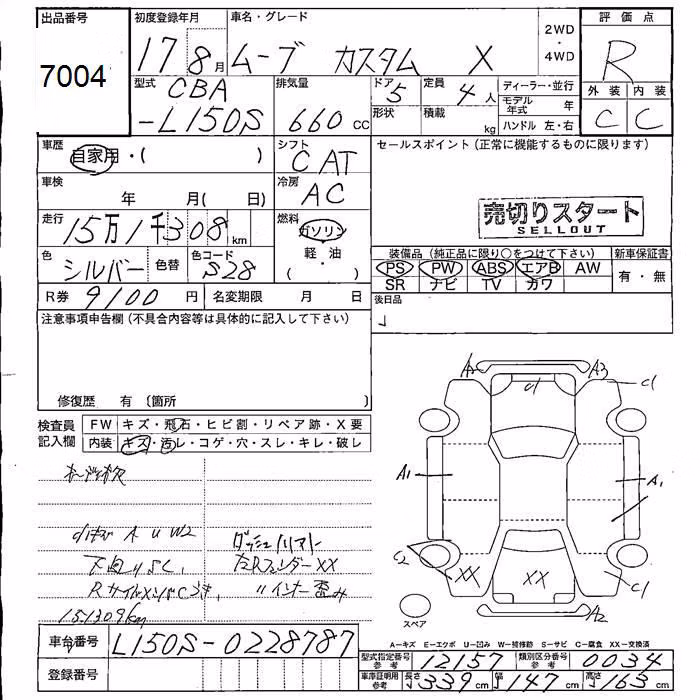 出品番号
7004
初度登録年月
17 8月
車名・グレード
ムーブ カスタム X
2WD
・
4WD
評価点
R
外装 内装
C C
型式
CBA
-L150S
排気量
660 cc
ドア
5
定員
4人
形状
積載
kg
ディーラー・並行
モデル年式 年
ハンドル 左・右
車歴
自家用・( )
シフト
CAT
車検
年 月( 日)
冷房
AC
走行
15万1千308km
燃料
ガソリン
軽・油
・( )
色
シルバー
色替
色コード
S28
R券 9100円
名変期限 月 日
セールスポイント(正常に機能するものに限ります)
売切りスタート
SELLOUT
装備品(純正品に限り〇をつけて下さい)
新車保証書
PS PW ABS エアB AW
SR ナビ TV カワ
有・無
後日品
注意事項申告欄(不具合内容等は具体的に記入して下さい)
修復歴 有 (箇所 )
検査員
記入欄
FW キズ・飛石・ヒビ割・リペア跡・X要
内装 キズ・汚レ・コゲ・穴・スレ・キレ・破レ
A U W2
下廻りサビ
XX
151309km
A2 A3
A1
A1
C2
C1
XX
XX
A2
スペア
A-キズ E-エクボ U-凹み W-補修跡 S-サビ C-腐食 XX-交換済
車台番号 L150S-0228787
登録番号
型式指定番号
参考
12157
類別区分番号
参考
0034
車庫証明用
参考
長さ 339cm
幅 147cm
高さ 163cm